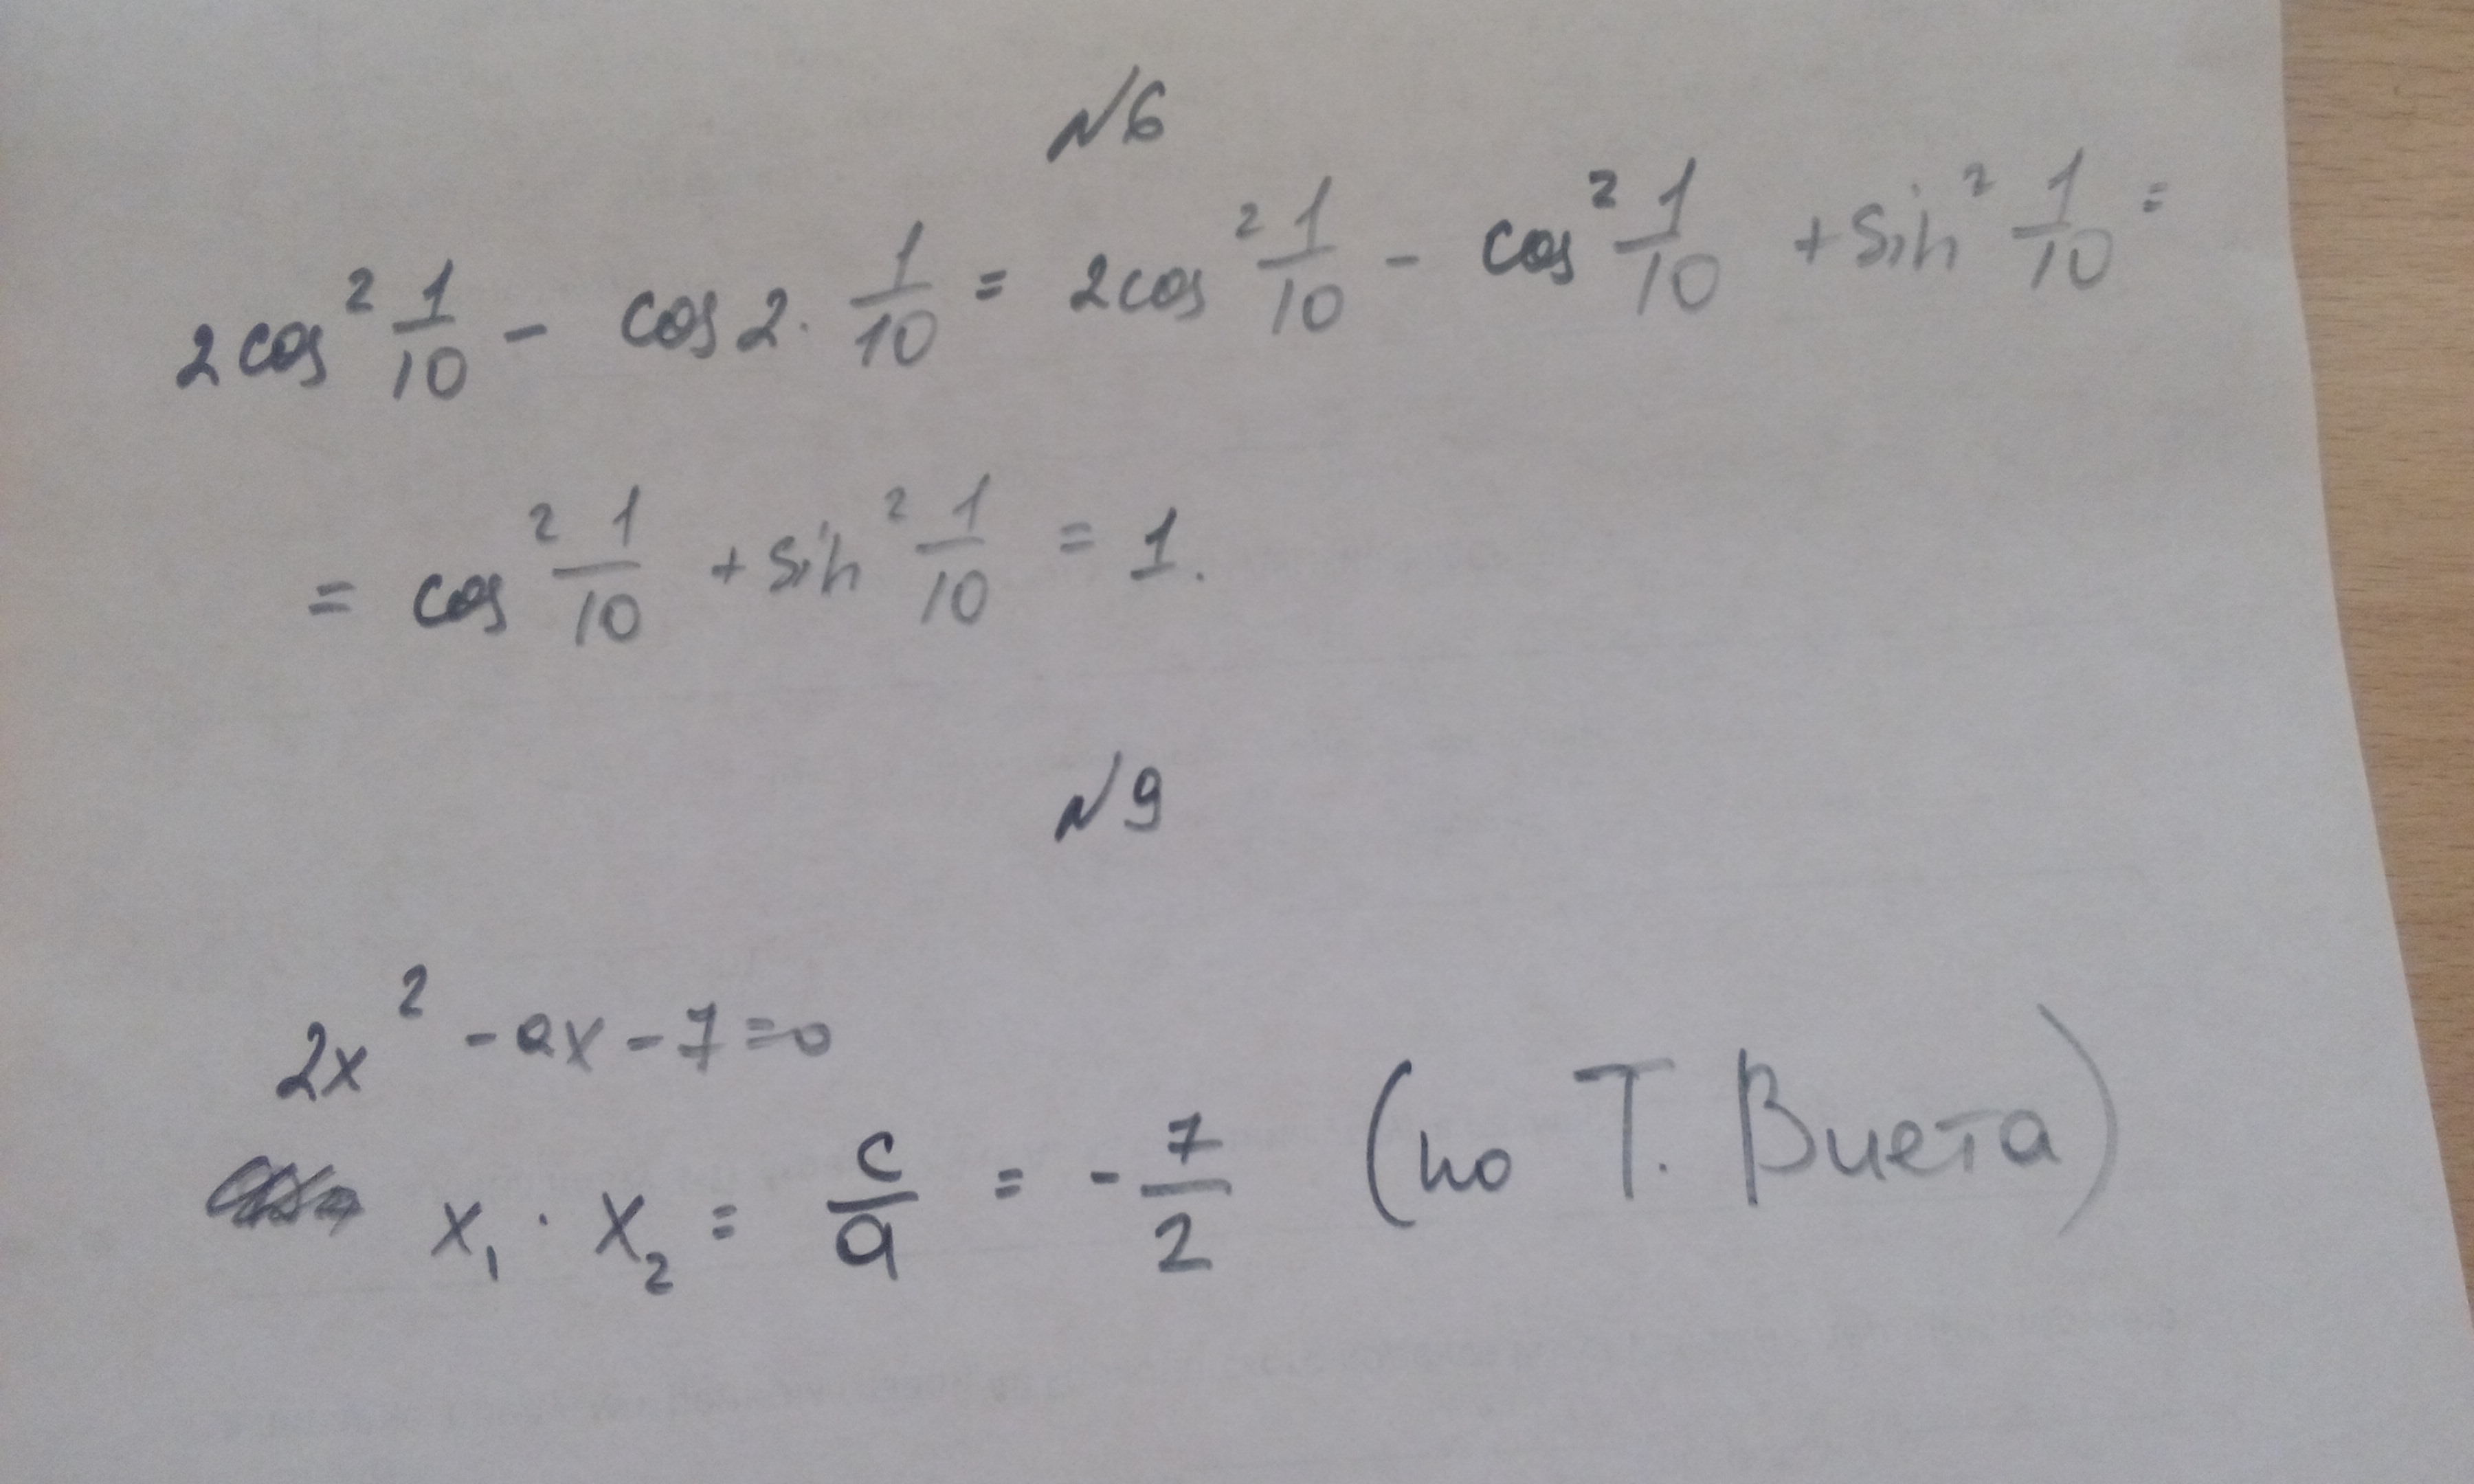 №6
2cos² 1/10 - cos 2 · 1/10 = 2cos² 1/10 - cos² 1/10 + sin² 1/10 =
= cos² 1/10 + sin² 1/10 = 1.
№9
2x² - ax - 7 = 0
x₁ · x₂ = c/a = - 7/2 (по Т. Виета)